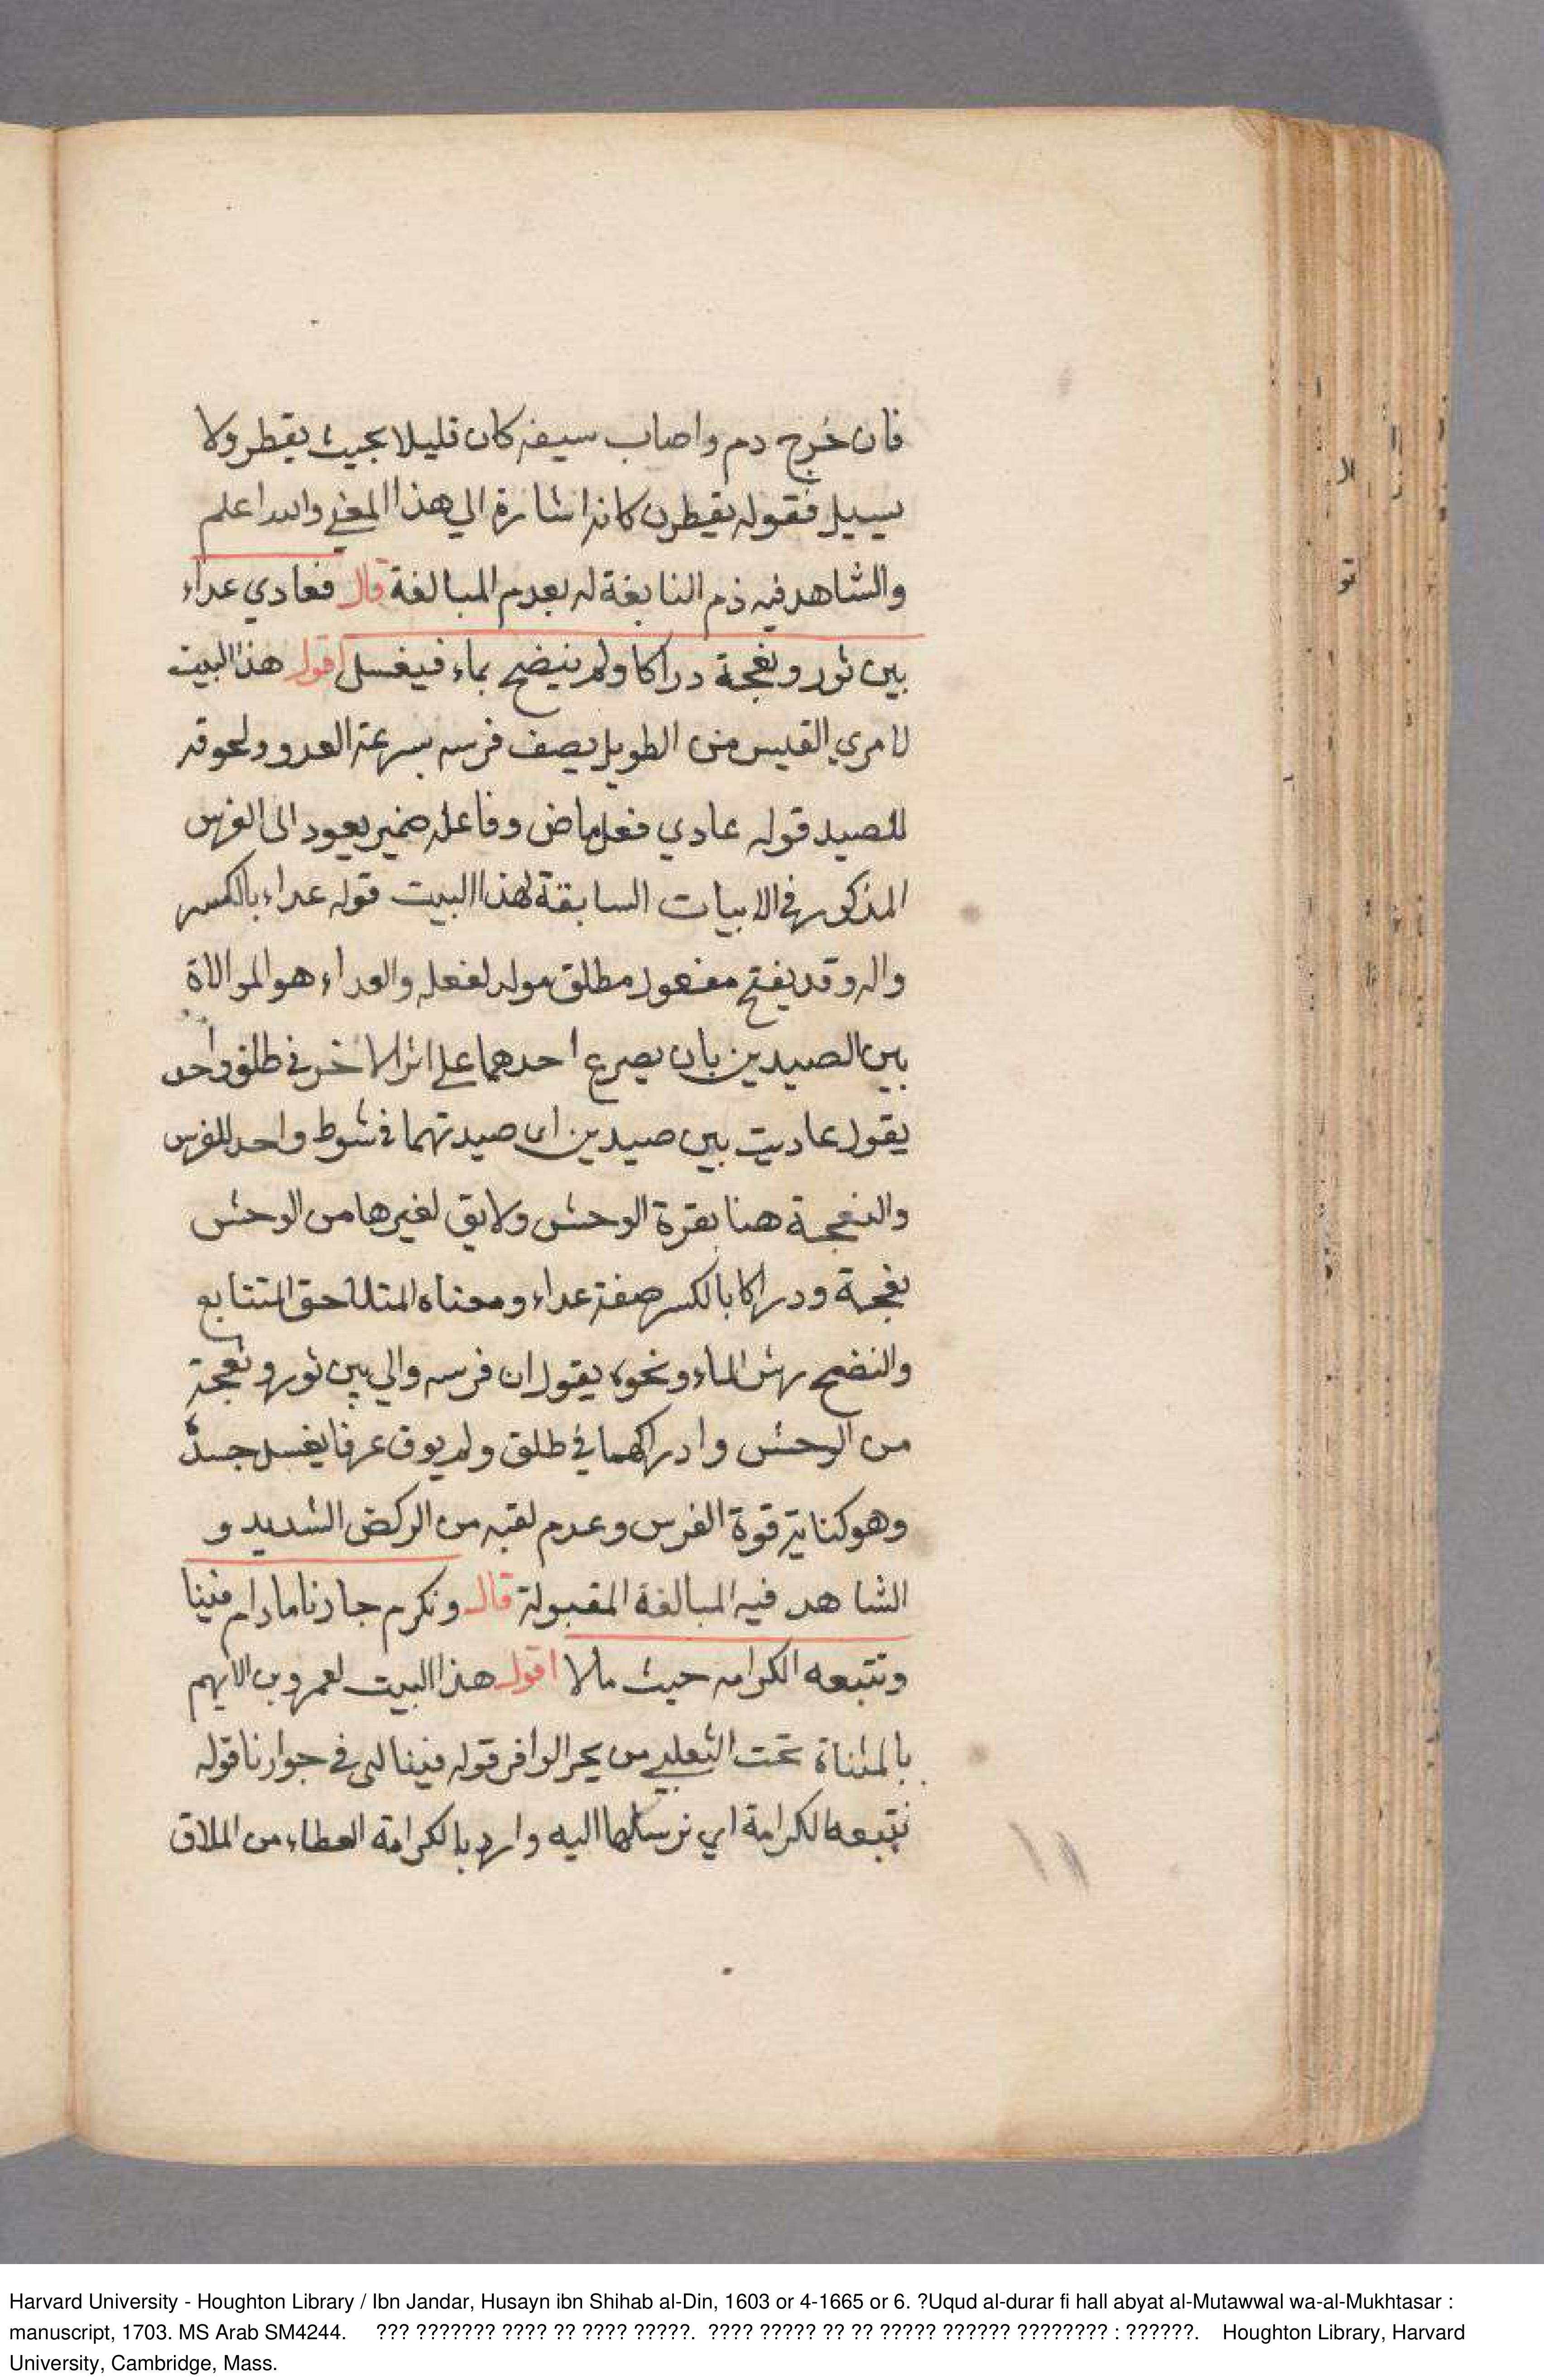 فان خرج دم واصاب سيفه كان قليلا بحيث يقطر ولا
يسيل فقوله يقطرن كانه اشارة الي هذا المغني والله اعلم
والشاهد فيه ذم النابغة له بعدم المبالغة قال فعادي عداء
بين ثور ونعجة دراكا ولم ينضح بماء فيغسل اقول هذا البيت
لامري القيس من الطويل يصف فرسه بسرعة العدو ولحوقه
للصيد قوله عادي فعل ماض وفاعله ضمير يعود الى الفرس
المذكور في الابيات السابقة لهذا البيت قوله عداء بالكسر
والمد وقد يفتح مفعول مطلق مولد لفعله والعداء هو الموالاة
بين الصيدين بان يصرع احدهما علي اثر الاخر في طلق واحد
يقول عاديت بين صيدين اي صيدتهما في شوط واحد للفرس
والنعجة هنا بقرة الوحش ولا يق لغيرها من الوحش
نعجة ودراكا بالكسر صفة عداء ومعناه المتلاحق المتتابع
والنضح رش الماء ونحوه يقول ان فرسه والي بين ثور ونعجة
من الوحش وادراكهما في طلق ولم يوق عرقا يغسل جسده
وهو كناية قوة الفرس وعدم لقبه من الركض الشديد و
الشاهد فيه المبالغة المقبولة قال ونكرم جارنا مادام فينا
ونتبعه الكرامه حيث مالا اقول هذا البيت لعمرو بن الايهم
بالمثناة تحت الثعلبي من بحر الوافر قوله فينا اى في جوارنا قوله
نتبعه الكرامة اي نرسلها اليه واراد بالكرامة العطاء من الملاق
١١
Harvard University - Houghton Library / Ibn Jandar, Husayn ibn Shihab al-Din, 1603 or 4-1665 or 6. ?Uqud al-durar fi hall abyat al-Mutawwal wa-al-Mukhtasar :
manuscript, 1703. MS Arab SM4244. ??? ??????? ???? ?? ???? ?????. ???? ????? ?? ?? ????? ?????? ???????? : ??????. Houghton Library, Harvard
University, Cambridge, Mass.